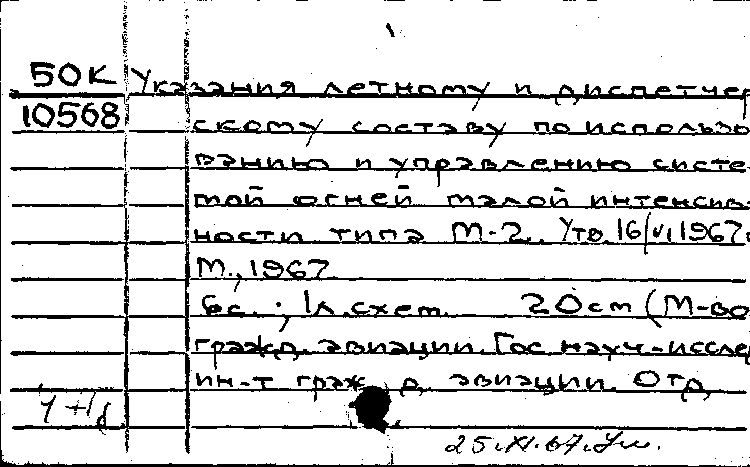 50К Указания летному и диспетчер
10568 скому составу по использо
ванию и управлению систе
мой огней малой интенсив-
ности типа М-2. Утв. 16/VI 1967г
М., 1967
6с.; 1л. схем. 20см (М-во
гражд. авиации. Гос. науч.-иссле
ин-т гражд. авиации. Отд
25.XI.67.